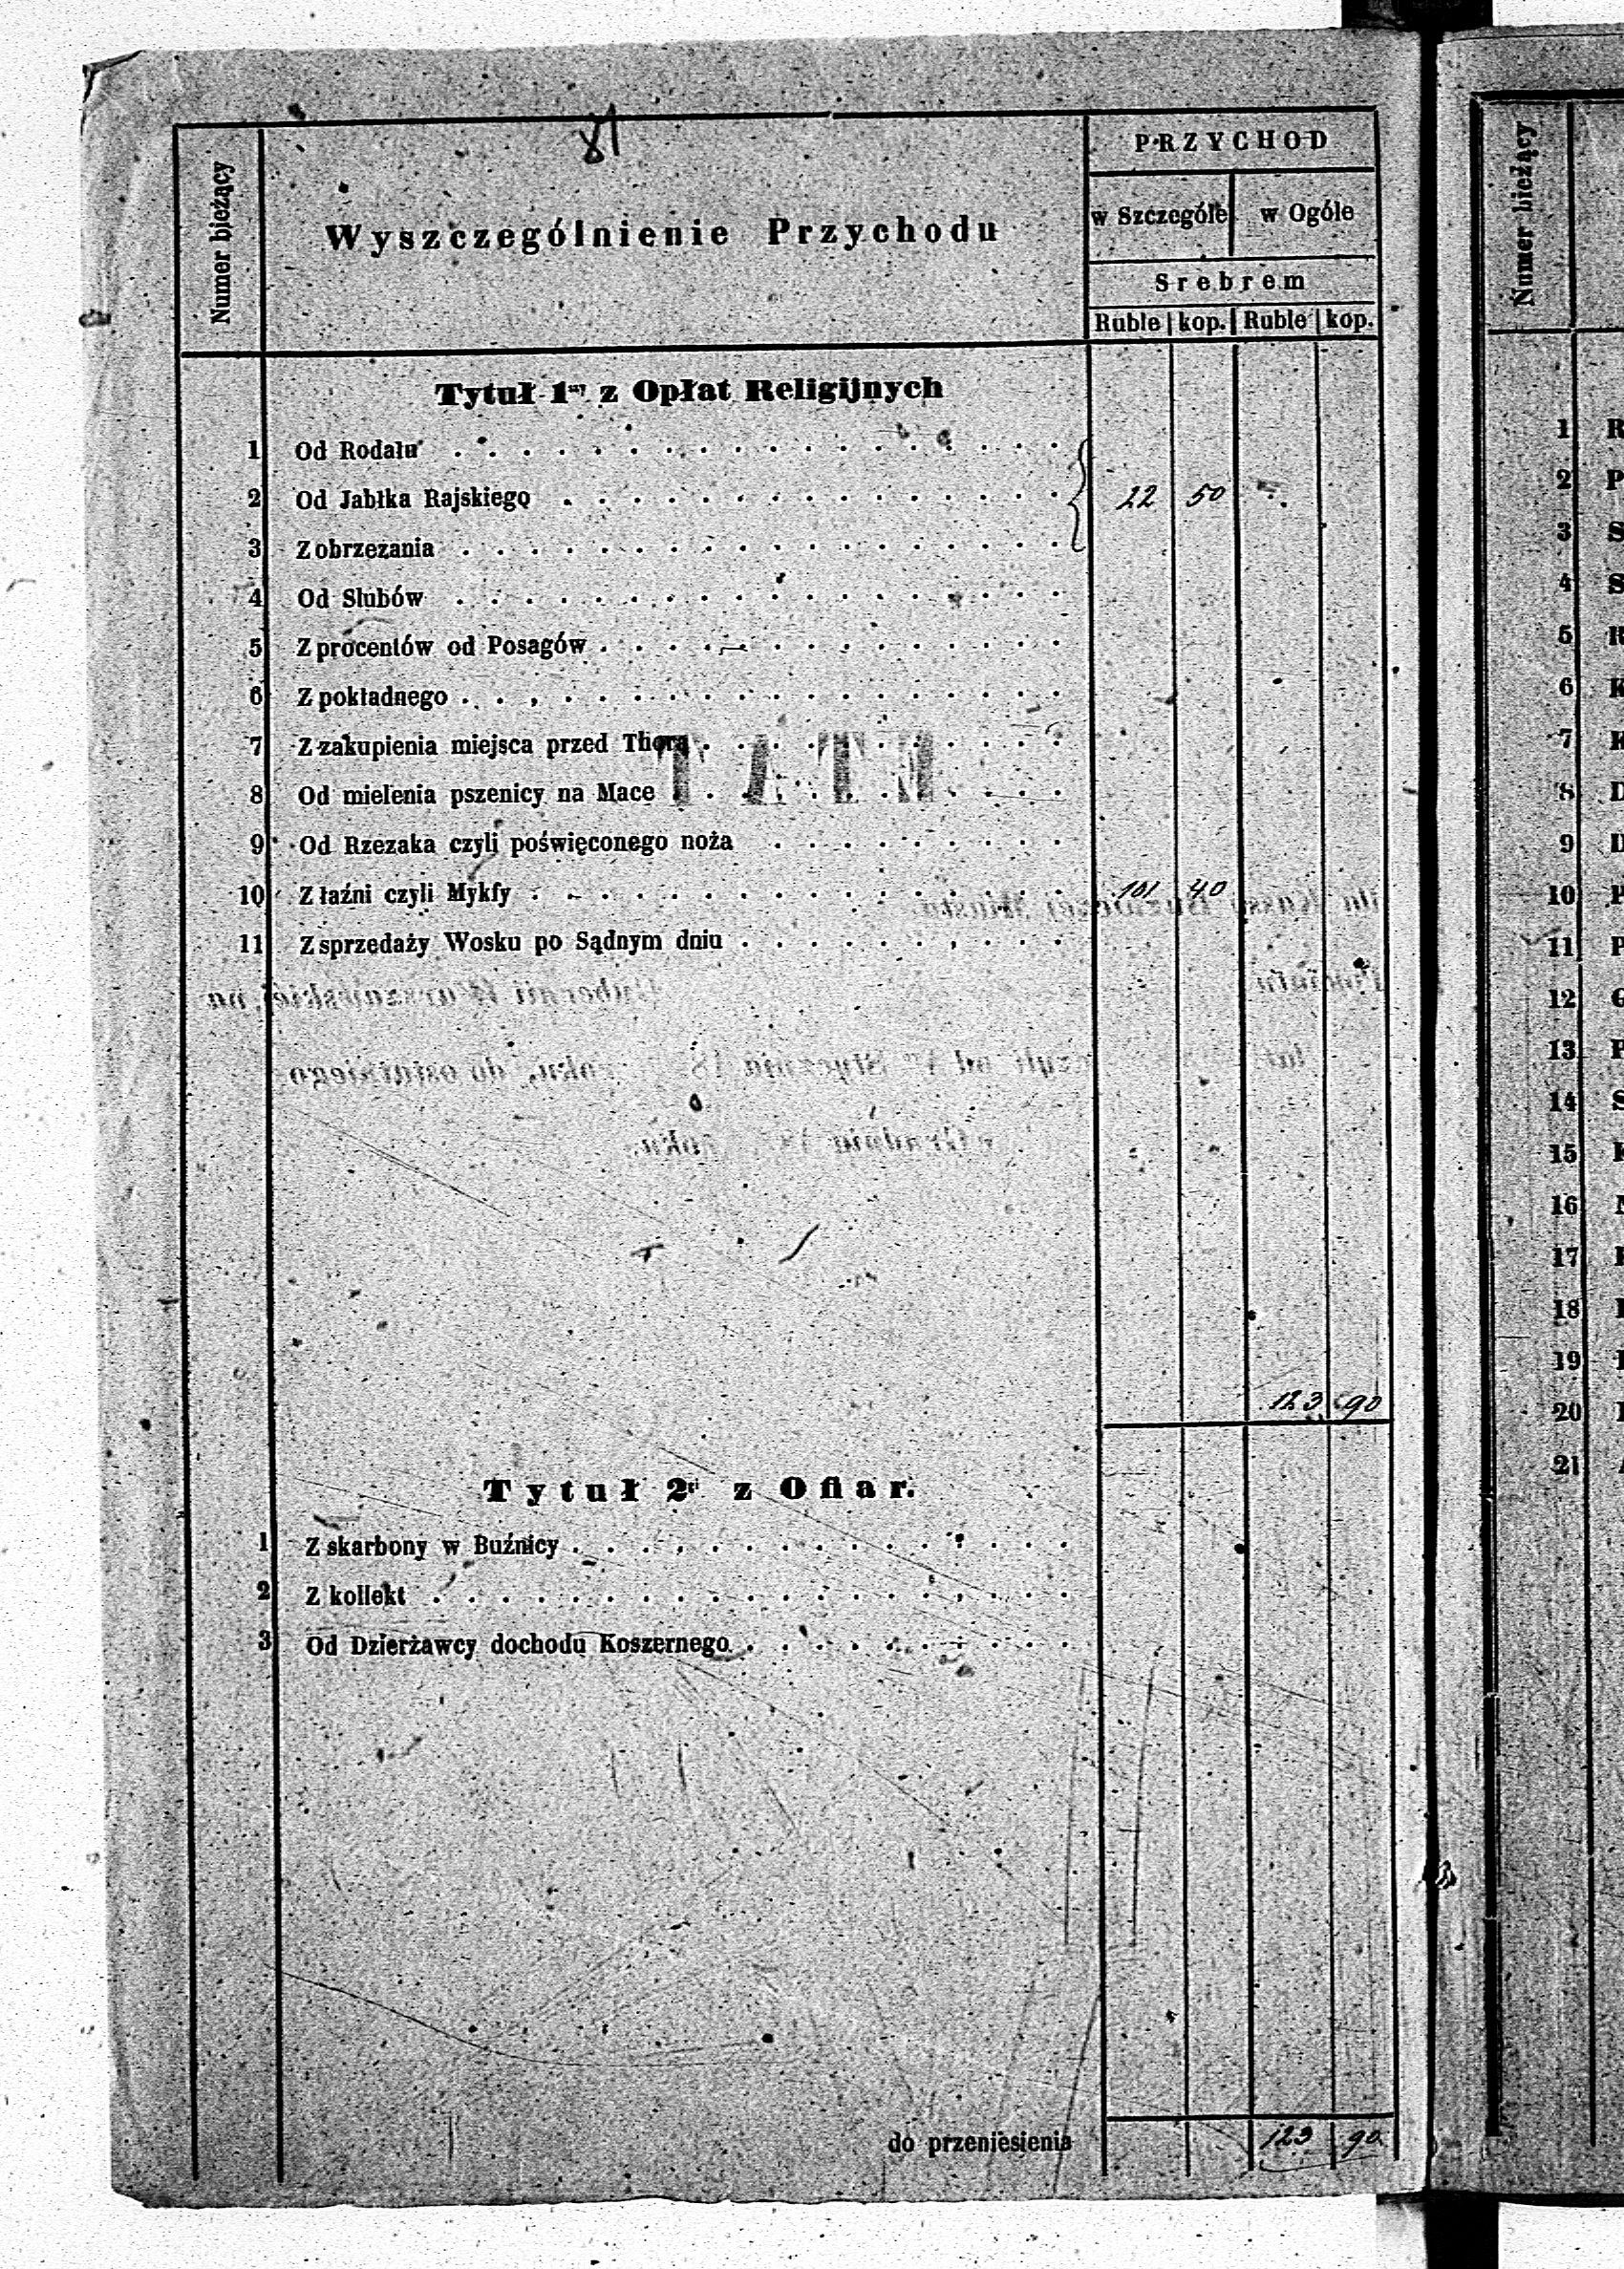 81
Numer bieżący
Wyszczególnienie Przychodu
PRZYCHOD
w Szczególe w Ogóle
Srebrem
Ruble kop. Ruble kop.
Tytuł 1szy z Opłat Religijnych
1 Od Rodału
2 Od Jabłka Rajskiego 22 50
3 Z obrzezania
4 Od Slubów
5 Z procentów od Posagów
6 Z pokładnego
7 Z zakupienia miejsca przed Thorą
8 Od mielenia pszenicy na Mace
9 Od Rzezaka czyli poświęconego noża
10 Z łaźni czyli Mykfy 101 40
11 Z sprzedaży Wosku po Sądnym dniu
123 90
Tytuł 2gi z Ofiar.
1 Z skarbony w Buźnicy
2 Z kollekt
3 Od Dzierżawcy dochodu Koszernego
do przeniesienia 123 90
Numer bieżący
1
2
3
4
5
6
7
8
9
10
11
12
13
14
15
16
17
18
19
20
21